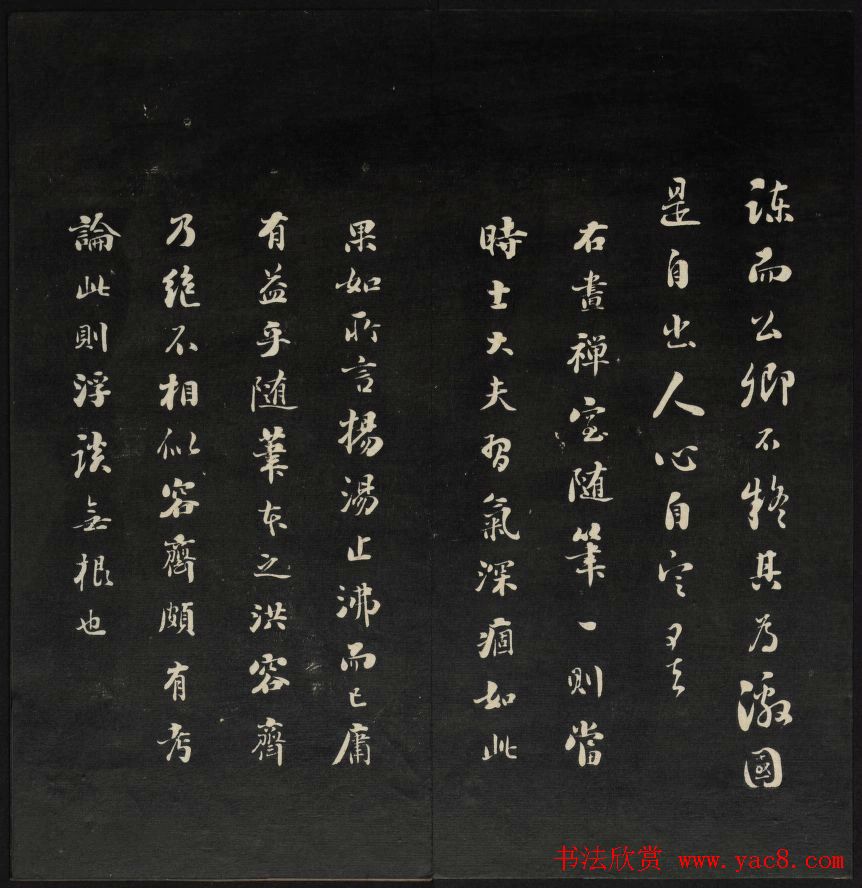 諫而公卿不疑其為激國
是自出人心自定矣
右畫禪室随筆一則當
時士大夫習氣深痼如此
果如所言揚湯止沸而已庸
有益乎随筆本之洪容齋
乃絶不相似容齋頗有考
論此則浮談無根也
书法欣赏 www.yac8.com